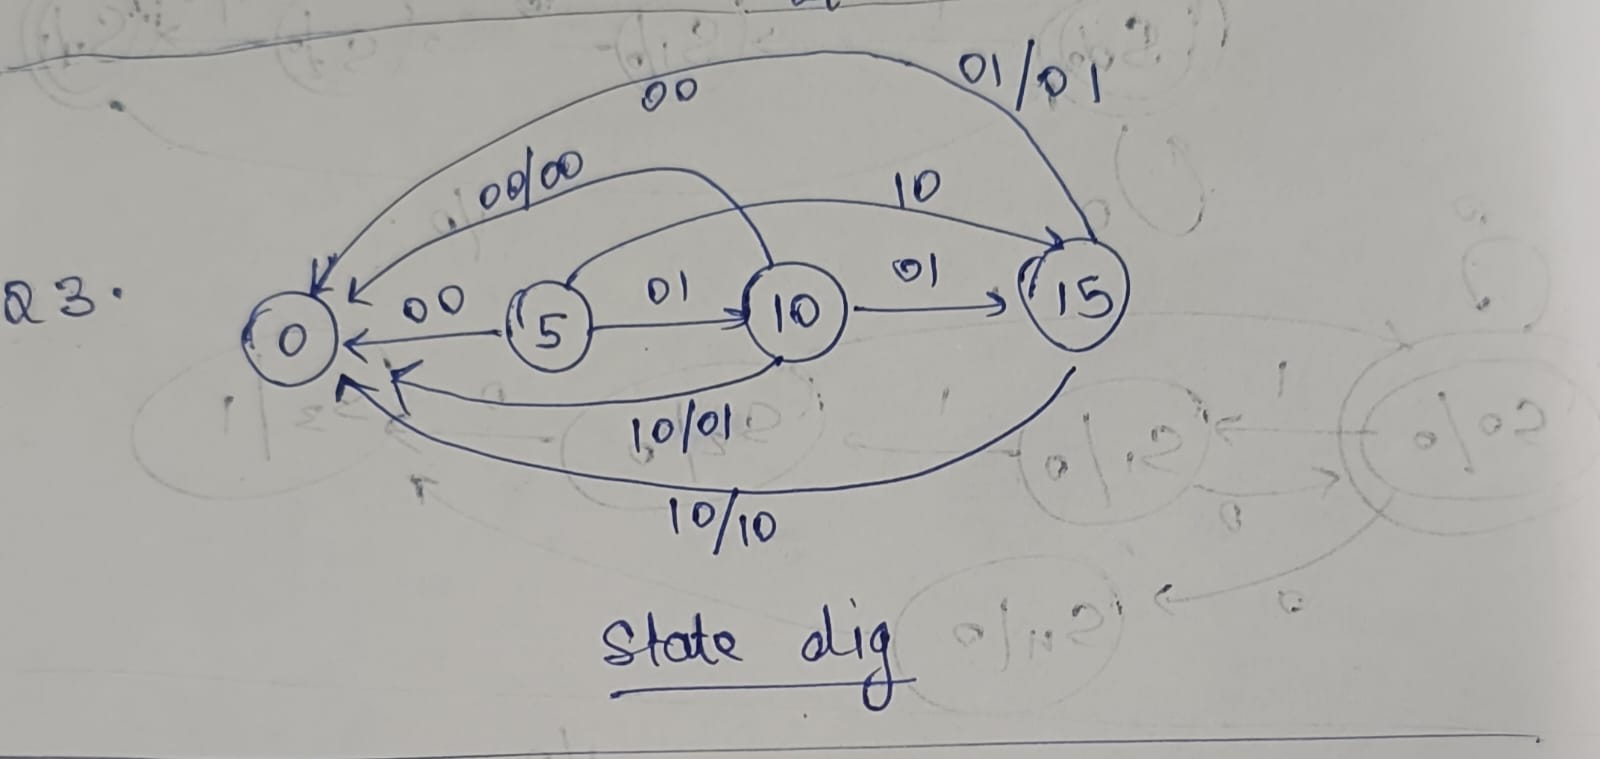 00 01/01
00/00 10
Q3.
0 00 5 01 10 01 15
10/01
10/10
State dig